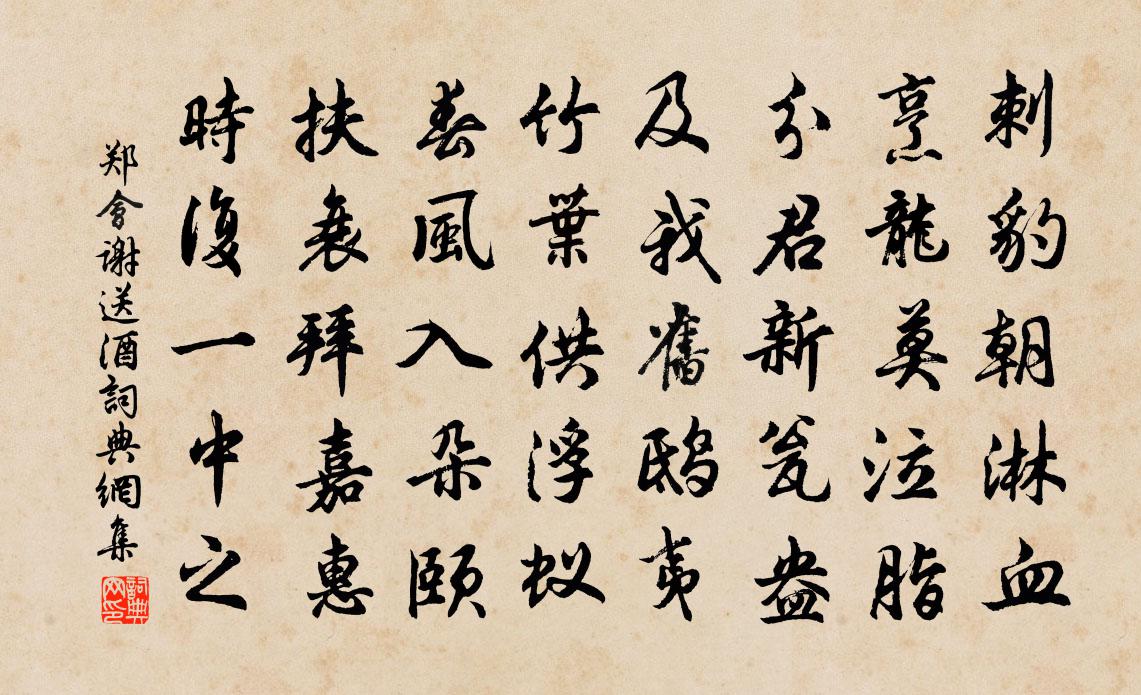 刺豹朝淋血
烹龍莫泣脂
分君新瓮盎
及我舊鴟夷
竹葉供浮蚁
春風入朵颐
扶衰拜嘉惠
時復一中之
郑會謝送酒詞典網集
詞典网印